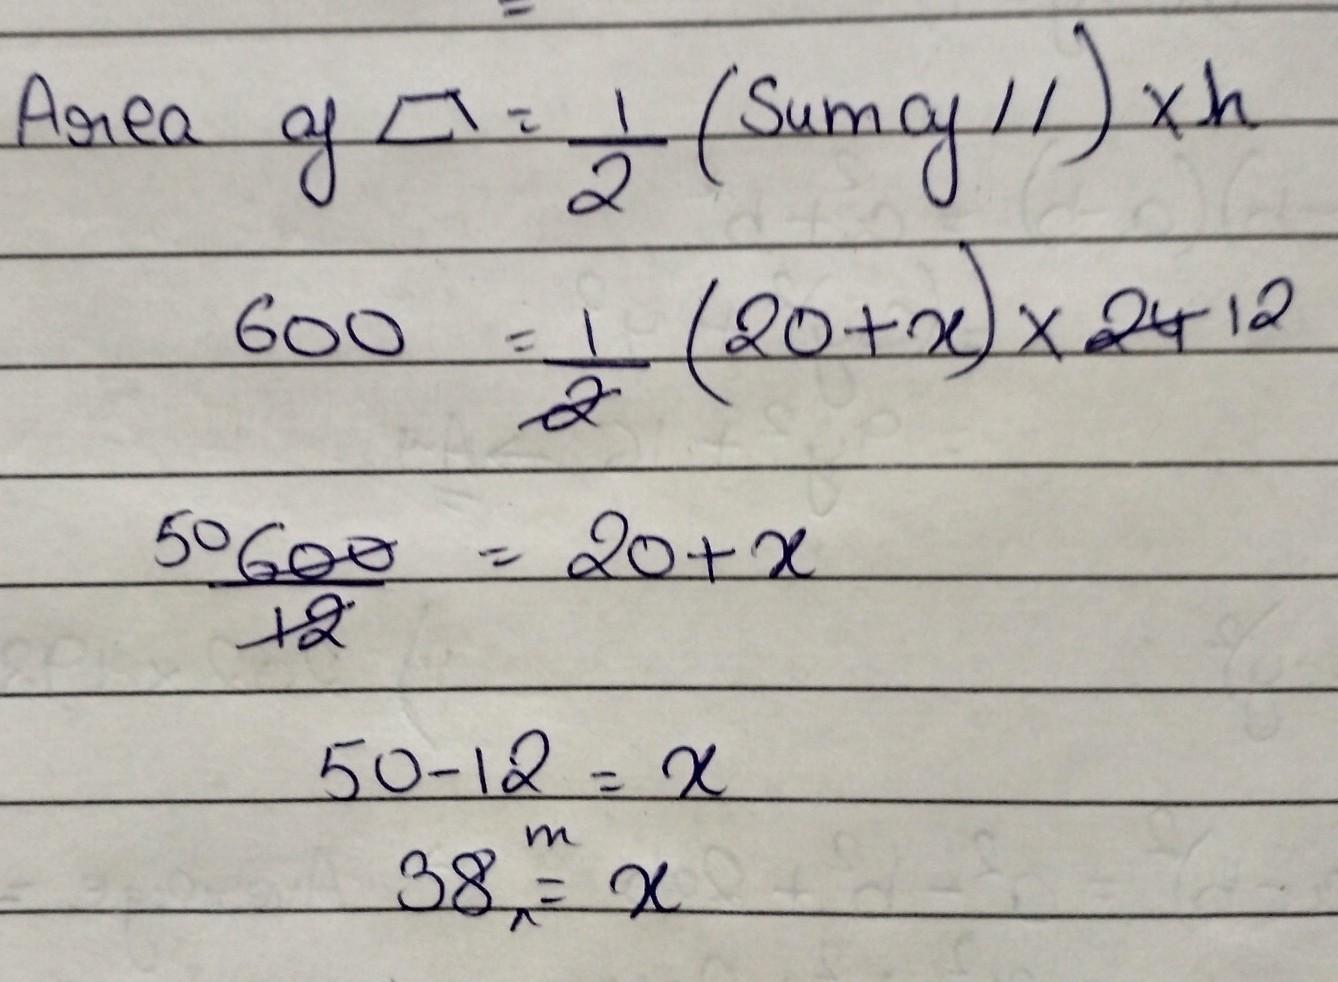 Area of ⏢ = 1/2 (Sum of //) × h
600 = 1/2 (20+x) × 24 12
50 600/12 = 20+x
50-12 = x
38 m = x